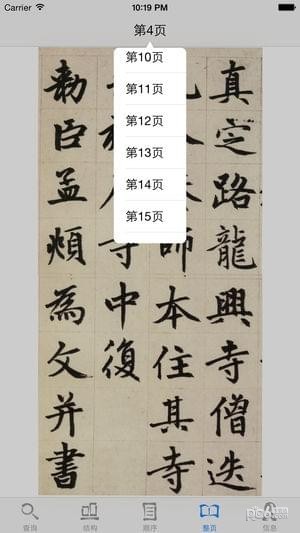 Carrier
10:19 PM
100%
第4页
第10页
第11页
第12页
第13页
第14页
第15页
真定路龍興寺僧迭
師本住其寺
寺中復
勅臣孟頫為文并書
查询
结构
顺序
整页
信息